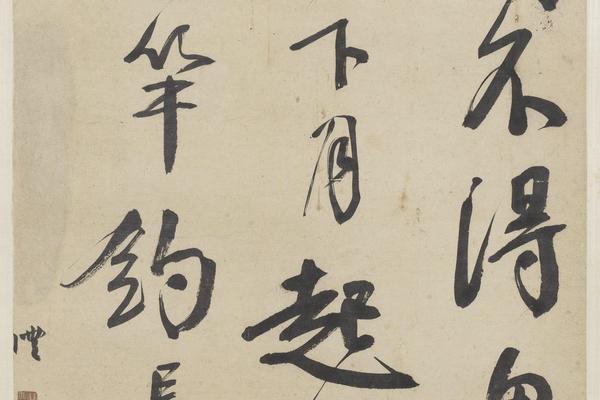 不得
下月起
竿釣